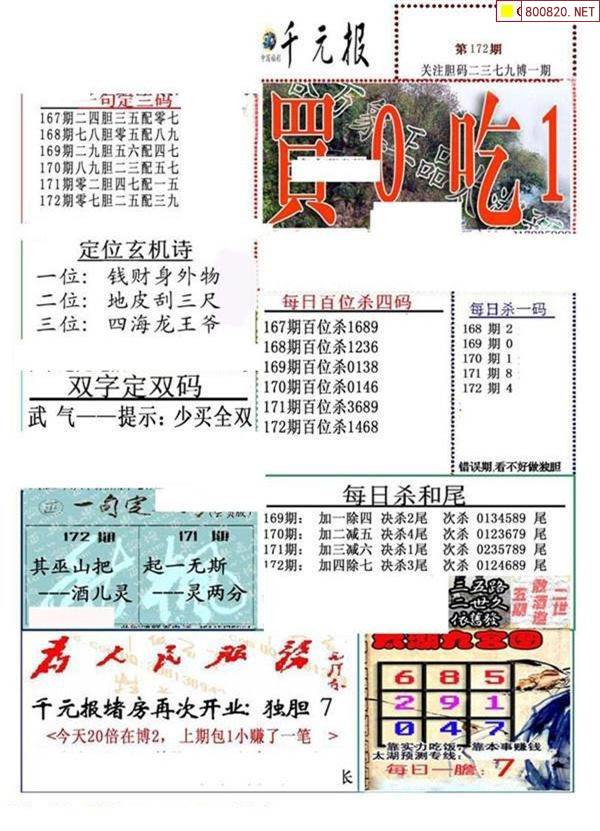 800820.NET
千元报
第172期
关注胆码二三七九博一期
一句定三码
167期二四胆三五配零七
168期七八胆零五配八九
169期二九胆五六配四七
170期八九胆二三配五七
171期零二胆四七配一五
172期零七胆二五配三九
買0吃1
定位玄机诗
一位: 钱财身外物
二位: 地皮刮三尺
三位: 四海龙王爷
每日百位杀四码
167期百位杀1689
168期百位杀1236
169期百位杀0138
170期百位杀0146
171期百位杀3689
172期百位杀1468
每日杀一码
168 期 2
169 期 0
170 期 1
171 期 8
172 期 4
错误期,看不好做独胆
双字定双码
武 气——提示: 少买全双
一句定
172 期
其巫山把
---酒儿灵
171 期
起一无斯
---灵两分
每日杀和尾
169期: 加一除四 决杀2尾 次杀 0134589 尾
170期: 加二减五 决杀4尾 次杀 0123679 尾
171期: 加三减六 决杀1尾 次杀 0235789 尾
172期: 加四除七 决杀3尾 次杀 0124689 尾
三五路
二世久
依旧發
散酒邀
二世
五期
为人民服务
千元报堵房再次开业: 独胆 7
<今天20倍在博2, 上期包1小赚了一笔 >
长
太湖九宫图
6 8 5
2 9 1
0 4 7
靠实力吃饭, 靠本事赚钱
太湖预测专线:
每日一胆: 7